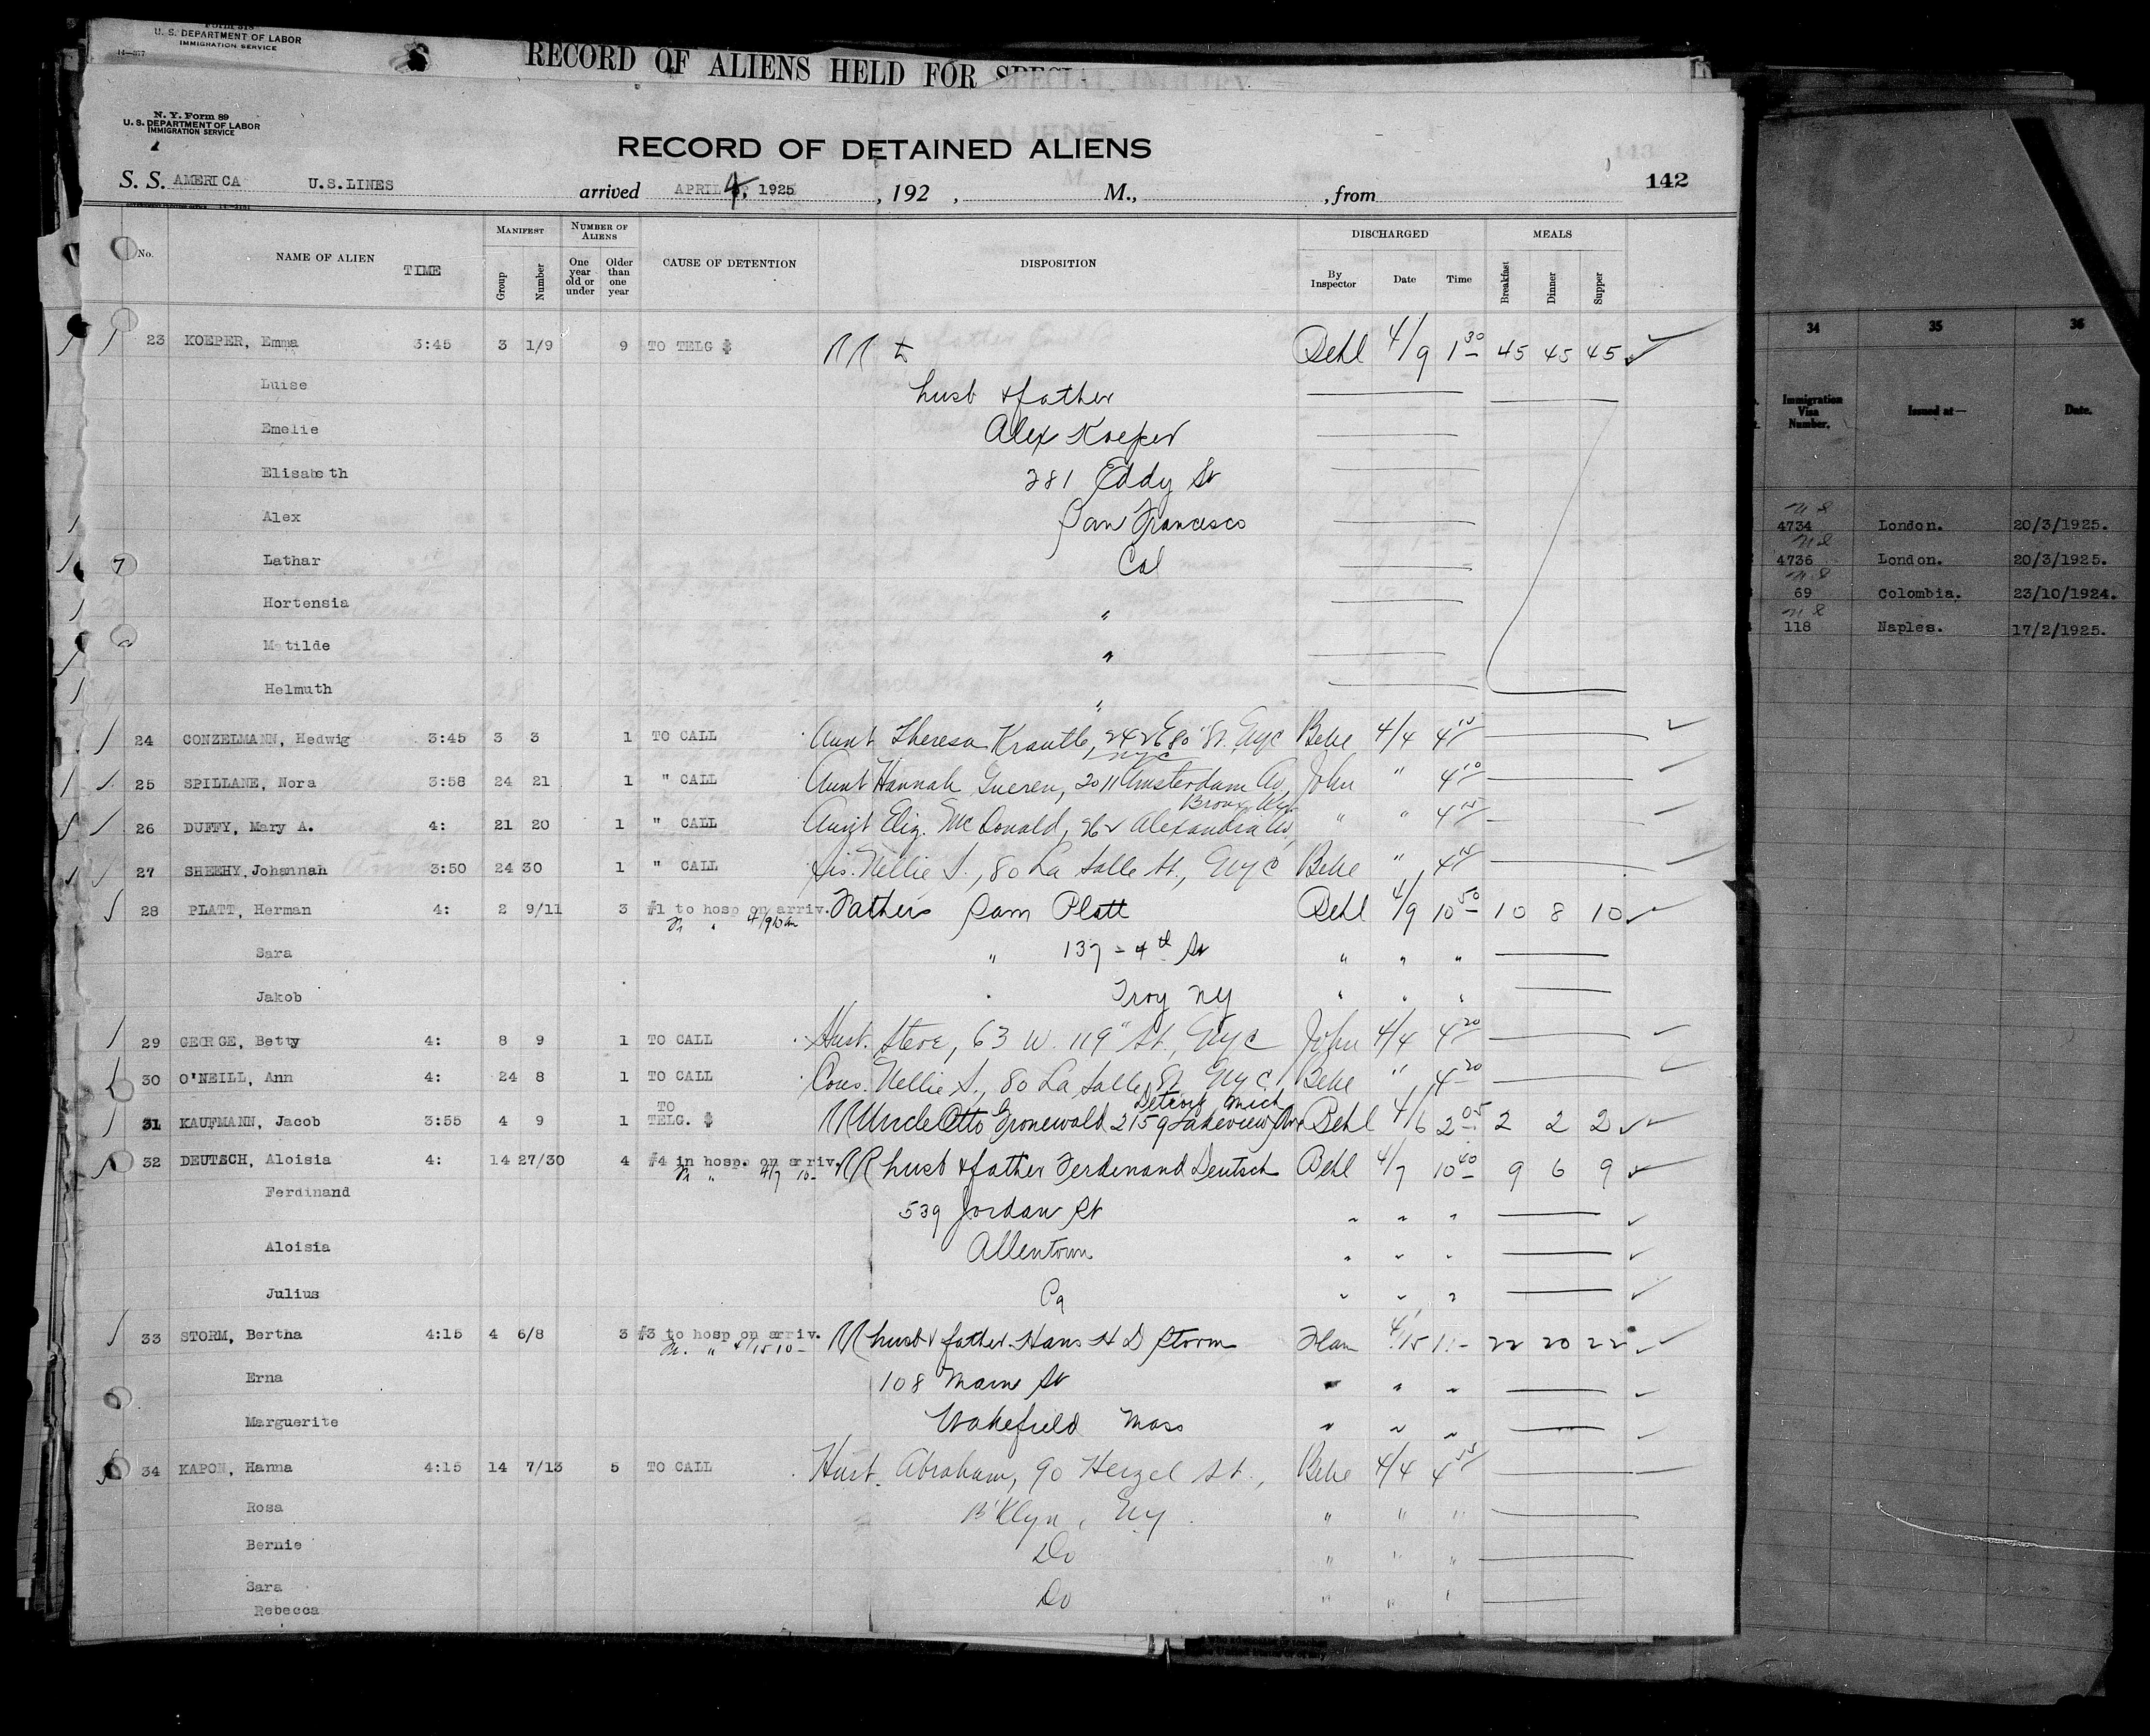 U. S. DEPARTMENT OF LABOR
IMMIGRATION SERVICE
14—377
RECORD OF ALIENS HELD FOR SPECIAL INQUIRY
N. Y. Form 89
U. S. DEPARTMENT OF LABOR
IMMIGRATION SERVICE
RECORD OF DETAINED ALIENS
142
S. S. AMERICA U.S.LINES arrived APRIL 4, 1925 , 192 , M., , from
No. NAME OF ALIEN TIME MANIFEST Group Number NUMBER OF ALIENS One year old or under Older than one year CAUSE OF DETENTION DISPOSITION DISCHARGED By Inspector Date Time MEALS Breakfast Dinner Supper
23 KOEPER, Emma 3:45 3 1/9 9 TO TELG $ RR to Behl 4/9 1 30 45 45 45
Luise husb & father
Emelie Alex Koeper
Elisabeth 281 Eddy St
Alex San Francisco
Lathar Cal
Hortensia "
Matilde "
Helmuth "
24 CONZELMANN, Hedwig 3:45 3 3 1 TO CALL Aunt Theresa Krautle, 242 E 80" St. NYC Behe 4/4 4 10
25 SPILLANE, Nora 3:58 24 21 1 " CALL Aunt Hannah Gueren, 2011 Amsterdam Av, NYC John " 4 10
26 DUFFY, Mary A. 4: 21 20 1 " CALL Aunt Eliz. McDonald, 262 Alexandria Av, Bronx NY " " 4 15
27 SHEEHY, Johannah 3:50 24 30 1 " CALL Sis. Nellie S., 80 La Salle St., NYC Behe " 4 15
28 PLATT, Herman 4: 2 9/11 3 #1 to hosp on arriv. Fr " 4/9 10 am Father Sam Platt Behl 4/9 10 50 10 8 10
Sara " 137 - 4th St " " "
Jakob Troy NY " " "
29 GEORGE, Betty 4: 8 9 1 TO CALL Husb. Steve, 63 W. 119" St., NYC John 4/4 4 20
30 O'NEILL, Ann 4: 24 8 1 TO CALL Cous. Nellie S., 80 La Salle St NYC Behe " 4 20
31 KAUFMANN, Jacob 3:55 4 9 1 TO TELG. $ RR Uncle Otto Gronewald 2159 Lakeview Ave Detroit Mich Behl 4/6 2 05 2 2 2
32 DEUTSCH, Aloisia 4: 14 27/30 4 #4 in hosp. on arriv. Fr " 4/7 10- RR husb & father Ferdenand Deutsch Behl 4/7 10 40 9 6 9
Ferdinand 539 Jordan St " " "
Aloisia Allentown " " "
Julius Pa " " "
33 STORM, Bertha 4:15 4 6/8 3 #3 to hosp on arriv. Fr. " 4/15 10- RR husb & father Hans H D Storm 4/15 1:- 22 20 22
Erna 108 Main St " " "
Marguerite Wakefield Mass " " "
34 KAPON, Hanna 4:15 14 7/13 5 TO CALL Husb. Abraham, 90 Herzel St., Behe 4/4 4 25
Rosa B'Klyn, NY. " " "
Bernie Do " " "
Sara Do " " "
Rebecca
34 35 36
Immigration Visa Number. Issued at— Date.
4734 London. 20/3/1925.
4736 London. 20/3/1925.
69 Colombia. 23/10/1924.
118 Naples. 17/2/1925.